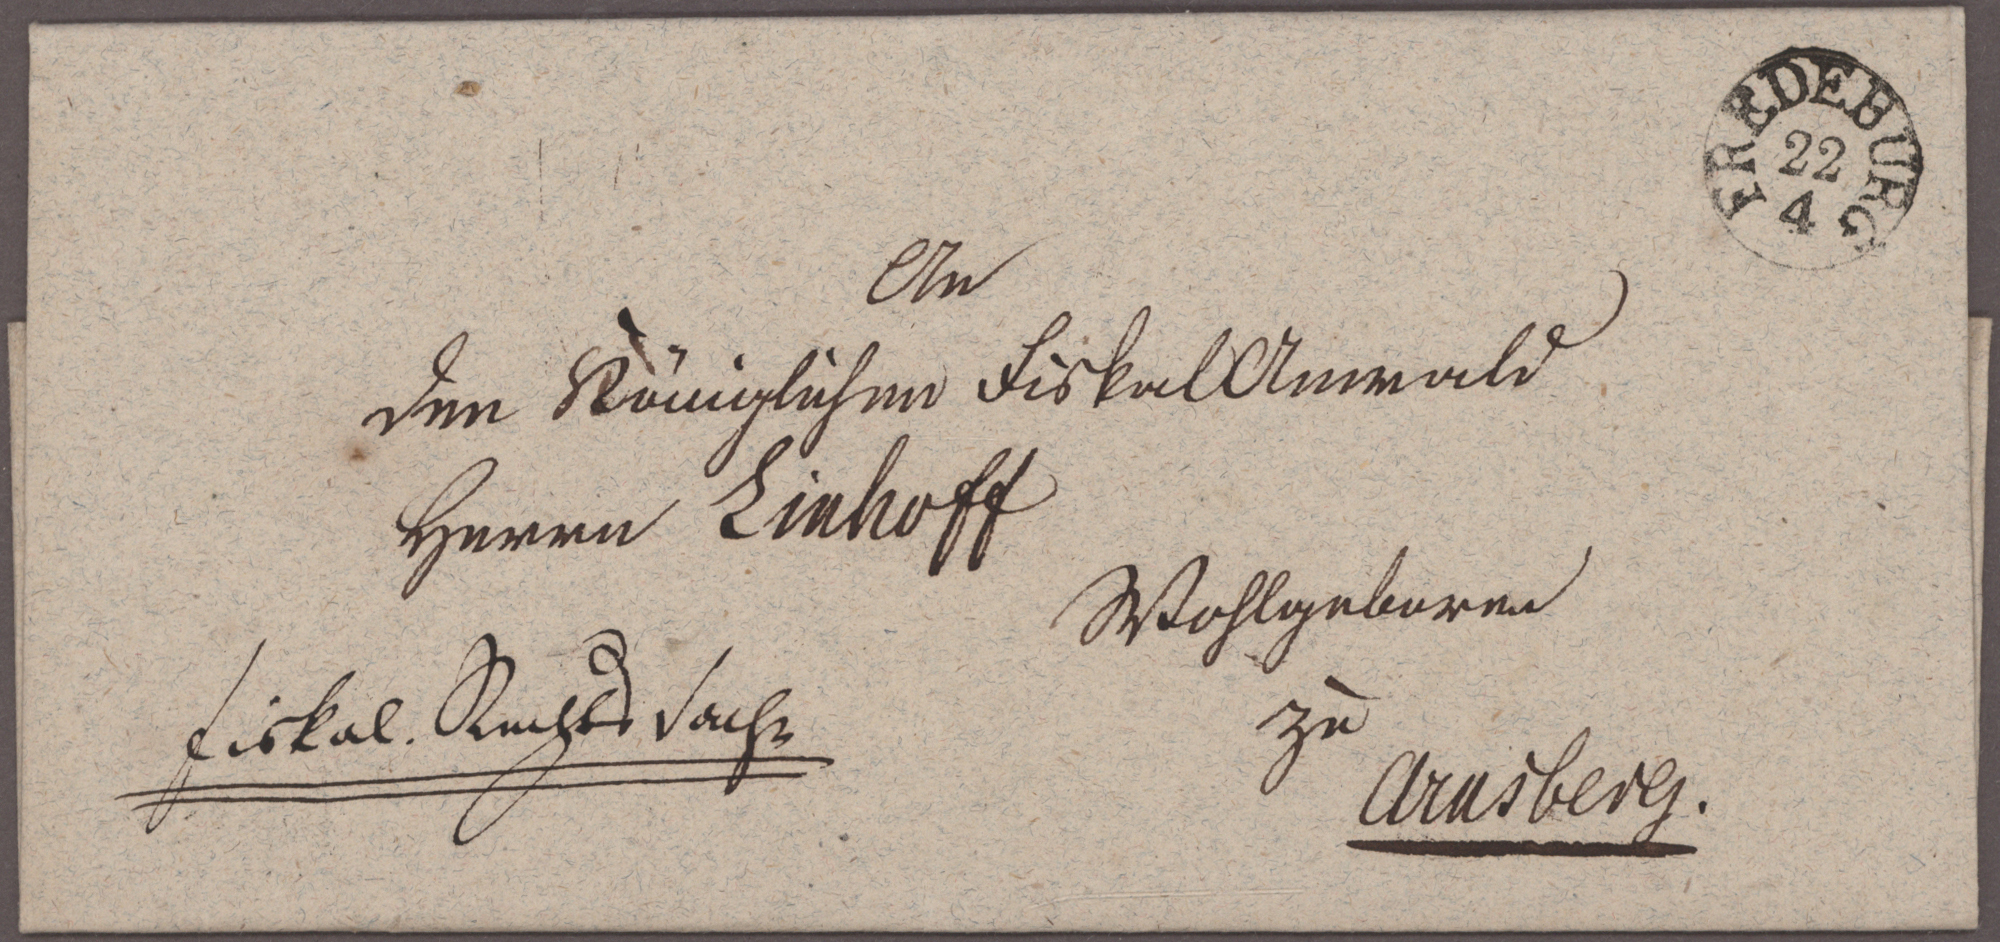 FREDEBURG
22
4
An
den Königlichen Fiskal Anwald
Herrn Linhoff
Wohlgeboren
zu
Arnsberg.
fiskal. Rechts Sache